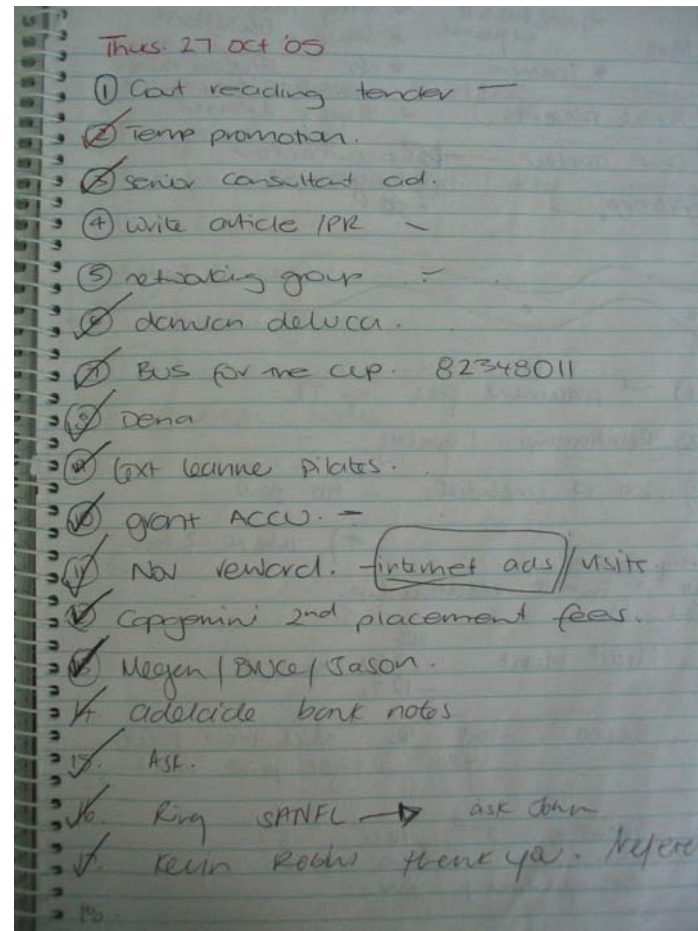 Thurs. 27 Oct '05
① Gout reading tender —
② Temp promotion.
③ senior consultant ad.
④ write article /PR -
⑤ networking group -
⑥ deluca.
⑦ BUS for the cup. 82348011
⑧ Dena
⑨ text leanne pilates.
⑩ grant ACCU. -
⑪ Nov reward. - internet ads / visits.
⑫ Capgemini 2nd placement fees.
⑬ Megan / Bruce / Jason.
14. adelaide bank notes
15. Ask.
16. Ring SANFL → ask
17. Kevin thank you.
18.